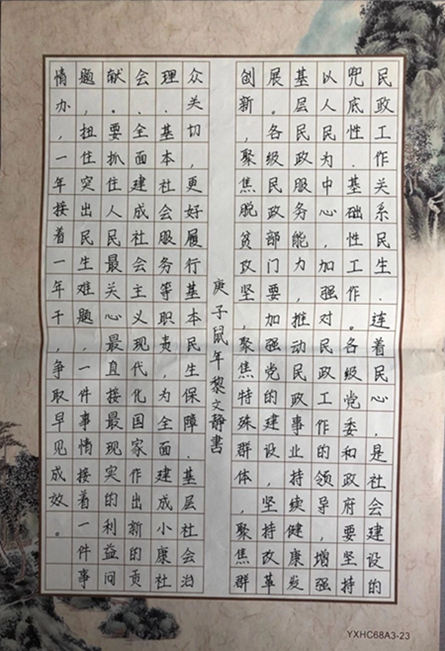 民政工作关系民生，连着民心，是社会建设的
兜底性、基础性工作。各级党委和政府要坚持
以人民为中心，加强对民政工作的领导，增强
基层民政服务能力，推动民政事业持续健康发
展。各级民政部门要加强党的建设，坚持改革
创新，聚焦脱贫攻坚，聚焦特殊群体，聚焦群
众关切，更好履行基本民生保障、基层社会治
理、基本社会服务等职责，为全面建成小康社
会、全面建成社会主义现代化国家作出新的贡
献。要抓住人民最关心最直接最现实的利益问
题，扭住突出民生难题，一件事情接着一件事
情办，一年接着一年干，争取早见成效。
庚子鼠年黎文静书
YXHC68A3-23